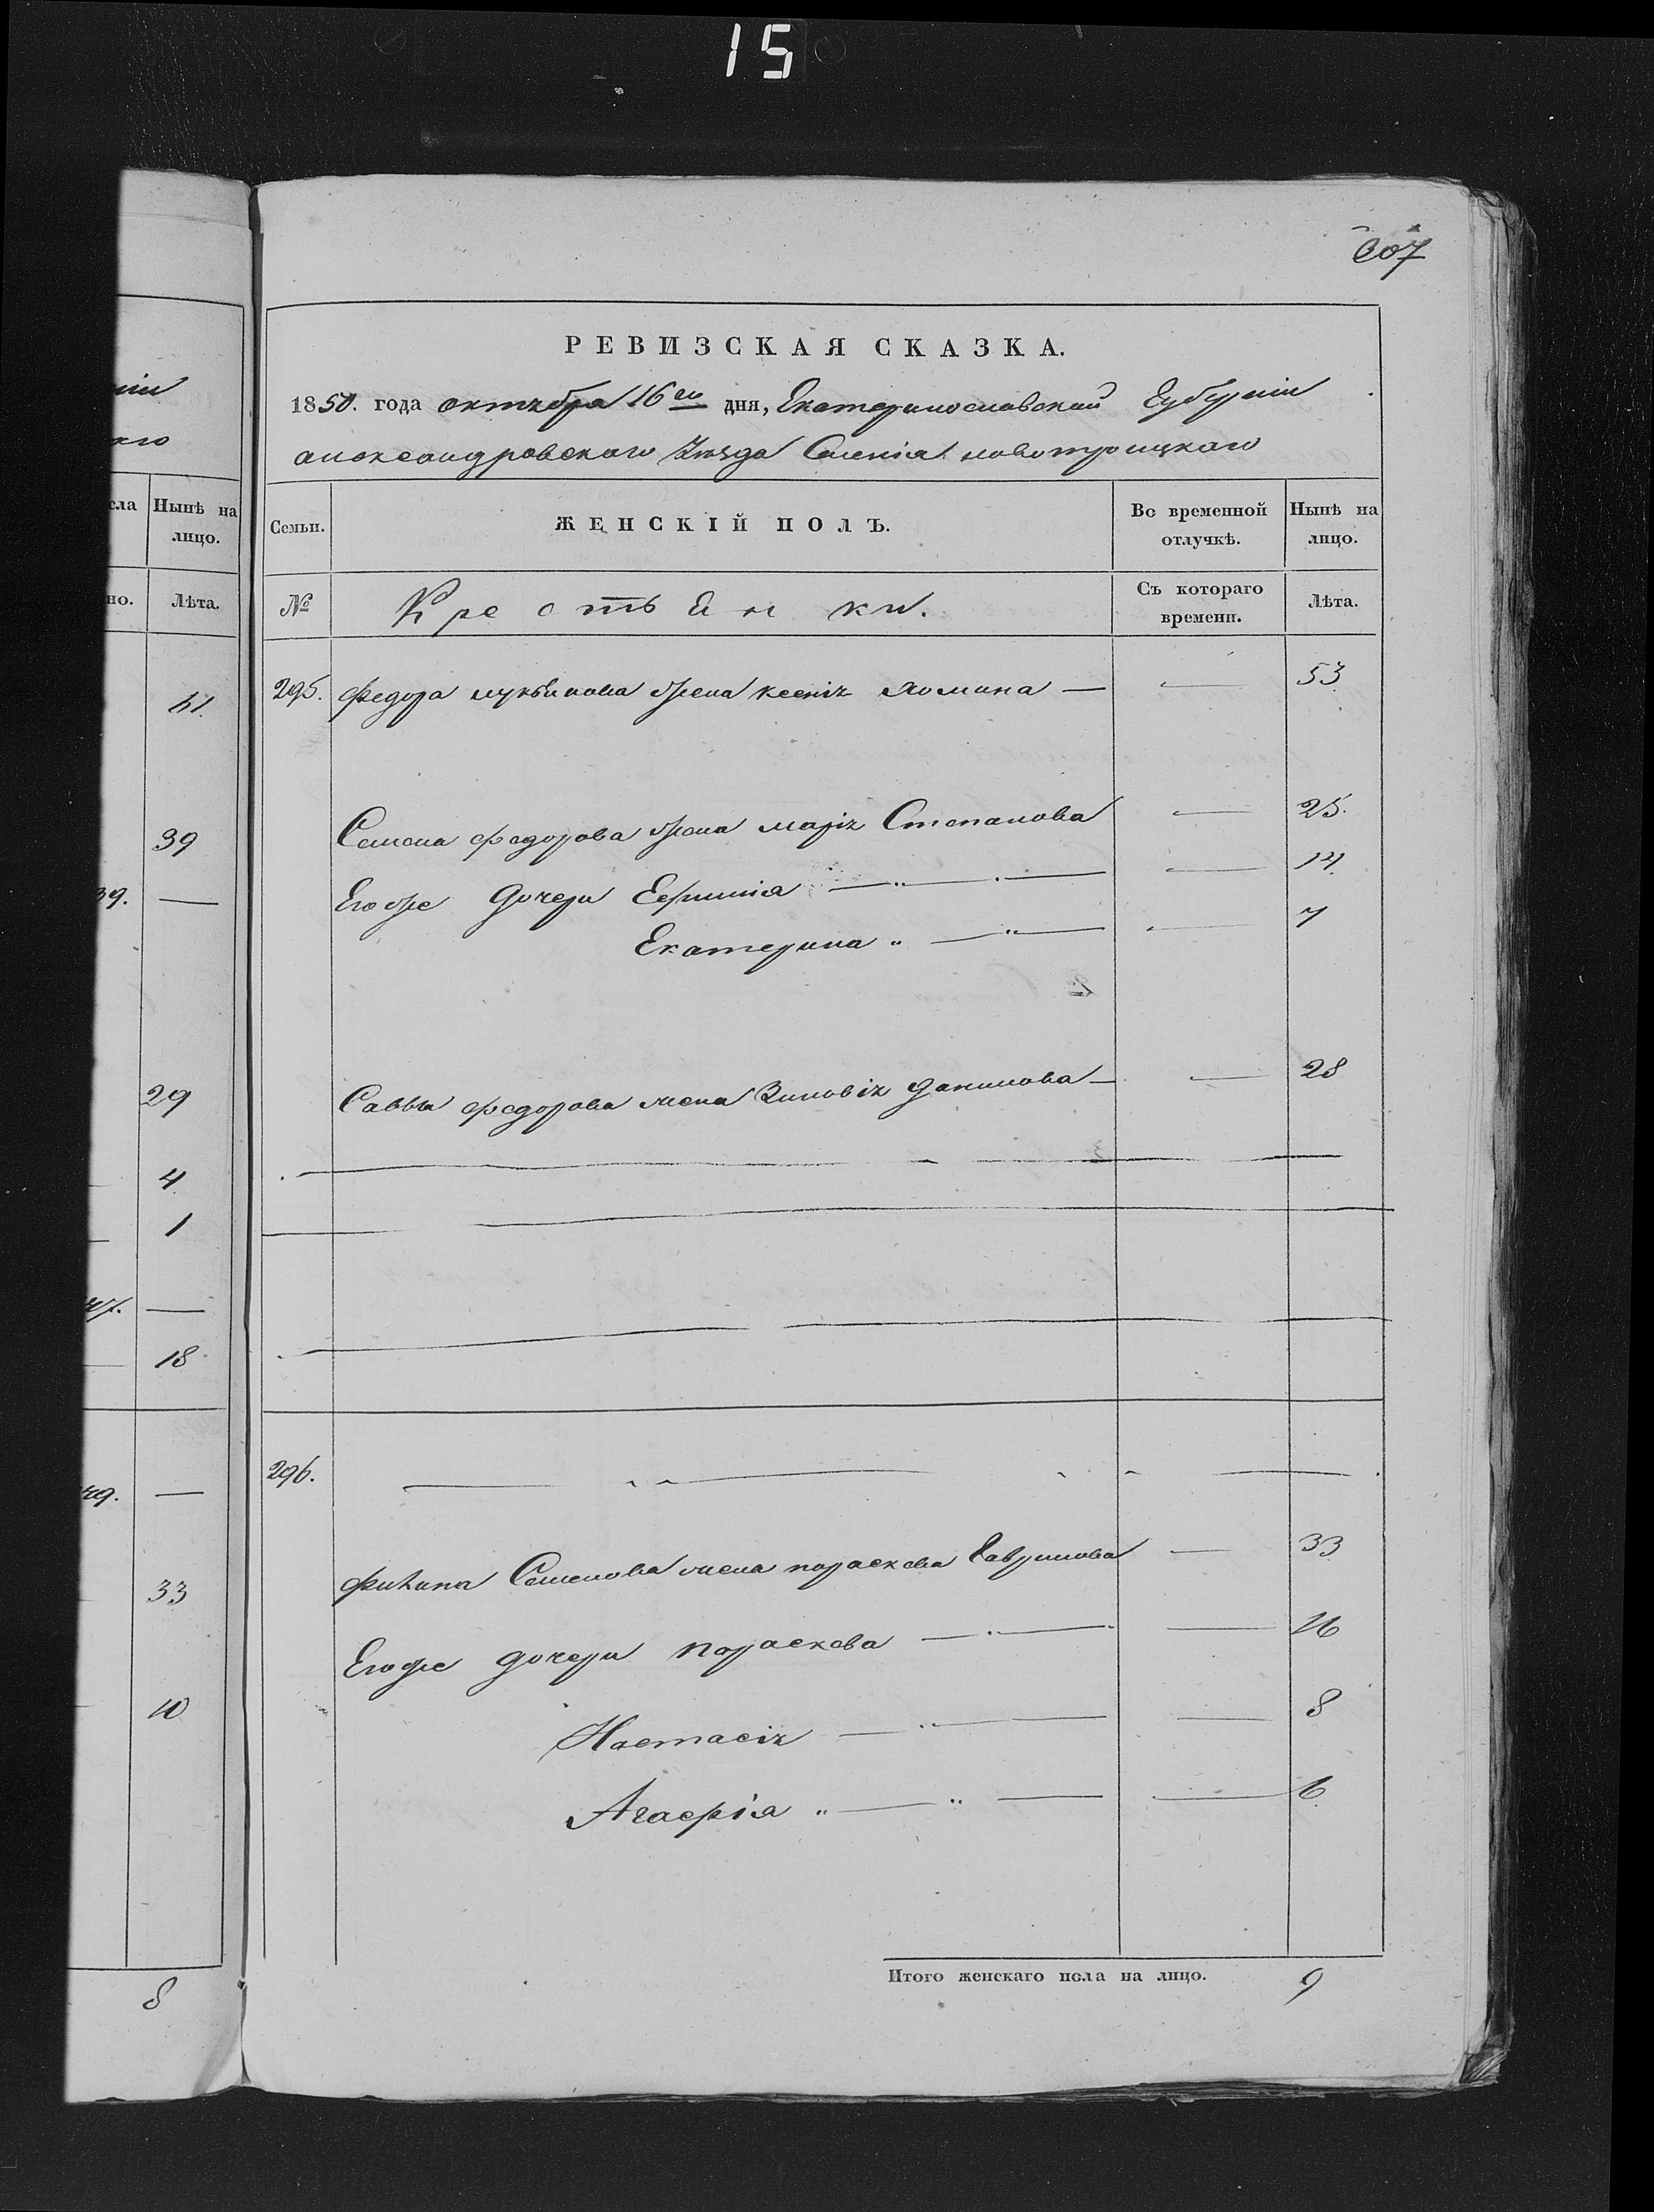 15
307
РЕВИЗСКАЯ СКАЗКА.
1850. года октября 16го дня, Екатеринославской Губерніи
александровского Уезда Селенія новотроицкаго
Семьи. ЖЕНСКІЙ ПОЛЪ. Во временной отлучкѣ. Нынѣ на лицо.
№ Крестьянки. Съ котораго времени. Лѣта.
295. Федора лукьянова жена ксенія — — 53
Семена федорова жена марія Степанова — 25.
Егоже дочери Ефимия — " — — 14.
Екатерина " — " — — 7
2
Саввы федорова жена Зиновія данилова — — 28
3
296.
филипа Семенова жена параскева Гаврилова — 33
Егоже дочери параскева — " — — 16
Настасія — " — — 8
Агафія " — " — — 6
Итого женскаго пола на лицо. 9
ніи
кго
сла Нынѣ на лицо.
но. Лѣта.
51.
39
39. —
29
4
1
47. —
18
49. —
33
10
8